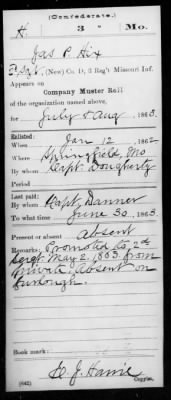 (Confederate.)
H 3 Mo.
Jas P. Hix
Sgt, (New) Co. D, 3 Reg't Missouri Inf.
Appears on
Company Muster Roll
of the organization named above,
for July & Aug, 1863.
Enlisted:
When Jan 12, 1862
Where Springfield, Mo
By whom Capt. Dougherty
Period
Last paid:
By whom Capt. Danner
To what time June 30, 1863.
Present or absent Absent
Remarks: Promoted to 2nd
Sergt May 2, 1863 from
private. Absent on
furlough.
Book mark:
J. Harris
(642) Copyist.